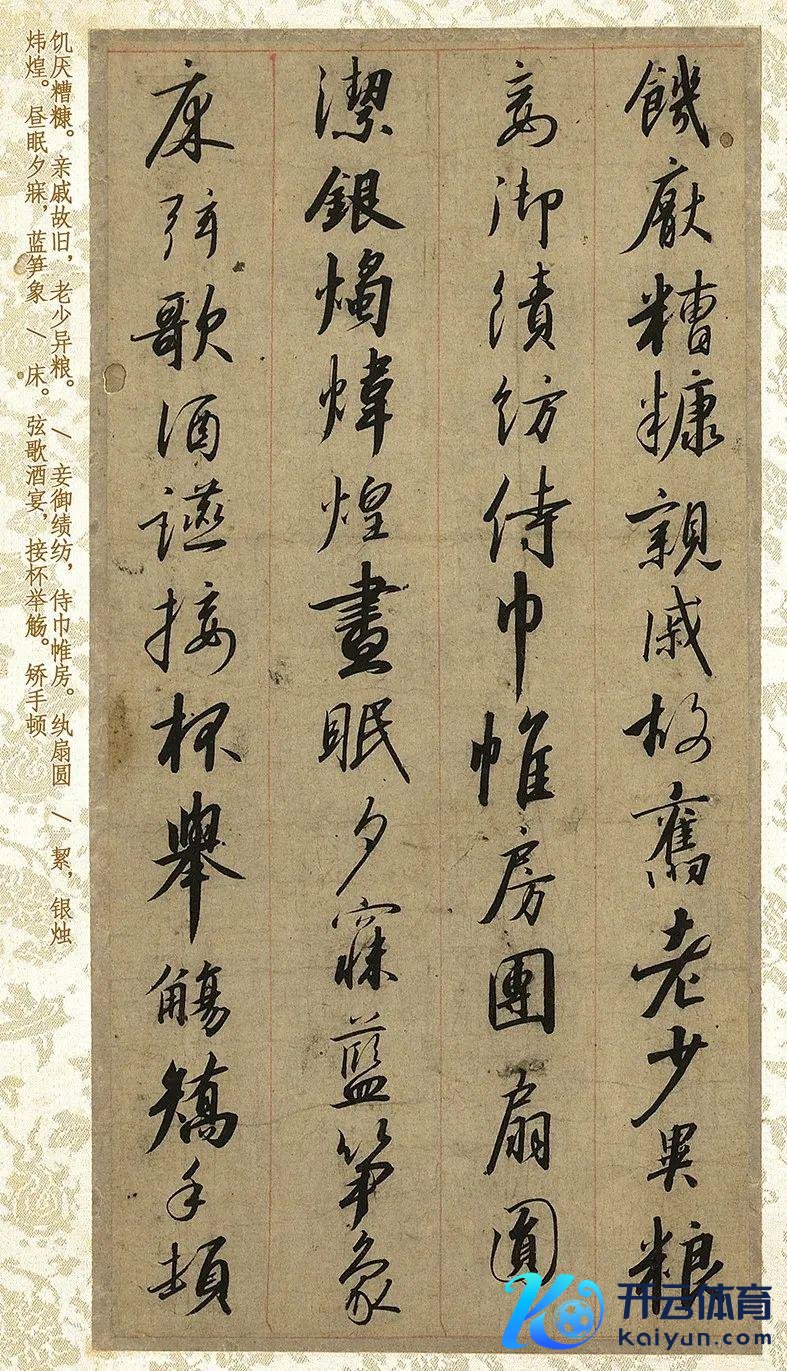 饑厭糟糠親戚故舊老少異粮
妾御績紡侍巾帷房團扇圓
潔銀燭煒煌晝眠夕寐藍笋象
床弦歌酒讌接杯舉觴矯手頓
饥厌糟糠。亲戚故旧，老少异粮。/ 妾御绩纺，侍巾帷房。纨扇圆 / 絜，银烛
炜煌。昼眠夕寐，蓝笋象 / 床。弦歌酒宴，接杯举觞。矫手顿
开云体育
kaiyun.com